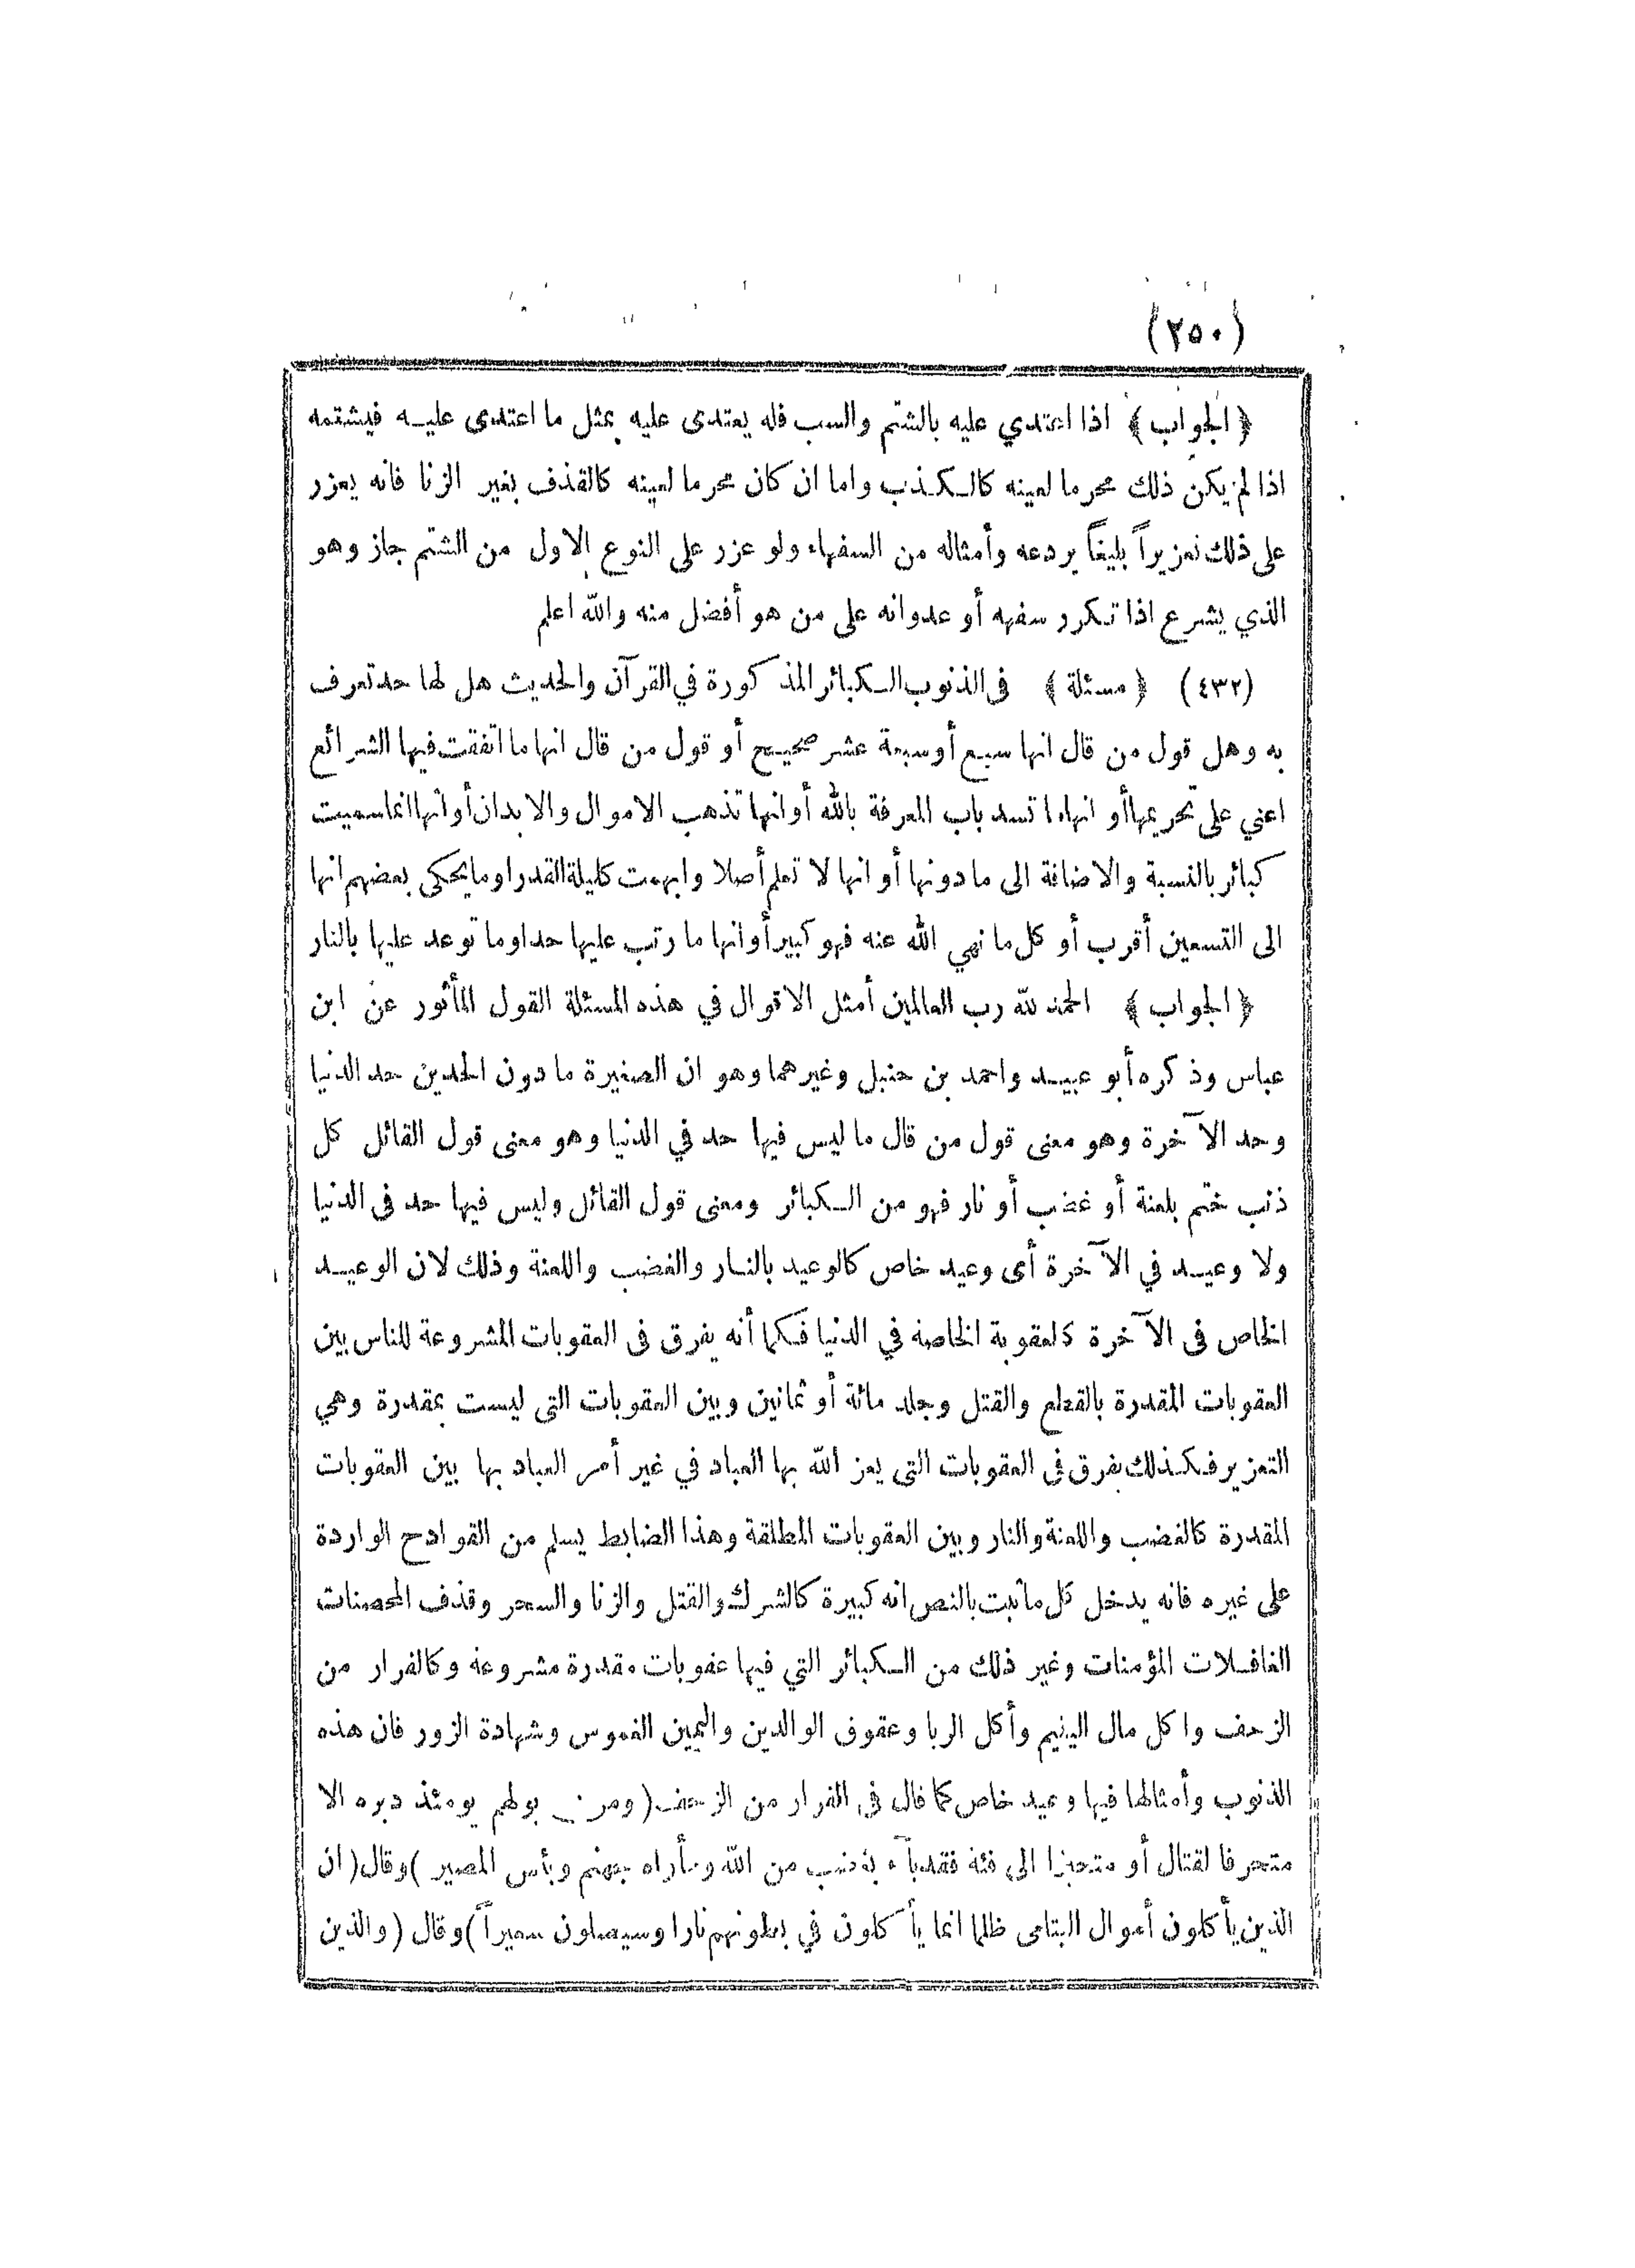 (٢٥٠)
﴿ الجواب ﴾ اذا اعتدي عليه بالشتم والسب فله يعتدى عليه بمثل ما اعتدى عليه فيشتمه
اذا لم يكن ذلك محرما لعينه كالكذب واما ان كان محرما لعينه كالقذف بغير الزنا فانه يعزر
على ذلك تعزيراً بليغاً يردعه وأمثاله من السفهاء ولو عزر على النوع الاول من الشتم جاز وهو
الذي يشرع اذا تكرر سفهه أو عدوانه على من هو أفضل منه والله اعلم
(٤٣٢) ﴿ مسئلة ﴾ فى الذنوب الكبائر المذكورة في القرآن والحديث هل لها حد تعرف
به وهل قول من قال انها سبع أو سبعة عشر صحيح أو قول من قال انها ما اتفقت فيها الشرائع
اعني على تحريمها أو انها ما تسد باب المعرفة بالله أو انها تذهب الاموال والابدان أو انها انما سميت
كبائر بالنسبة والاضافة الى ما دونها أو انها لا تعلم أصلا وابهمت كليلة القدر او ما يحكى بعضهم انها
الى التسعين أقرب أو كل ما نهي الله عنه فهو كبير أو انها ما رتب عليها حد او ما توعد عليها بالنار
﴿ الجواب ﴾ الحمد لله رب العالمين أمثل الاقوال في هذه المسئلة القول المأثور عن ابن
عباس وذكره أبو عبيد واحمد بن حنبل وغيرهما وهو ان الصغيرة ما دون الحدين حد الدنيا
وحد الآخرة وهو معنى قول من قال ما ليس فيها حد في الدنيا وهو معنى قول القائل كل
ذنب ختم بلعنة أو غضب أو نار فهو من الكبائر ومعنى قول القائل وليس فيها حد فى الدنيا
ولا وعيد في الآخرة أى وعيد خاص كالوعيد بالنار والغضب واللعنة وذلك لان الوعيد
الخاص فى الآخرة كالعقوبة الخاصة في الدنيا فكما أنه يفرق فى العقوبات المشروعة للناس بين
العقوبات المقدرة بالقطع والقتل وجلد مائة أو ثمانين وبين العقوبات التى ليست بمقدرة وهي
التعزير فكذلك يفرق في العقوبات التى يعز الله بها العباد في غير أمر العباد بها بين العقوبات
المقدرة كالغضب واللعنة والنار وبين العقوبات المطلقة وهذا الضابط يسلم من القوادح الواردة
على غيره فانه يدخل كل ما ثبت بالنص انه كبيرة كالشرك والقتل والزنا والسحر وقذف المحصنات
الغافلات المؤمنات وغير ذلك من الكبائر التي فيها عقوبات مقدرة مشروعة وكالفرار من
الزحف واكل مال اليتيم وأكل الربا وعقوق الوالدين واليمين الغموس وشهادة الزور فان هذه
الذنوب وأمثالها فيها وعيد خاص كما قال فى الفرار من الزحف ( ومن يولهم يومئذ دبره الا
متحرفا لقتال أو متحيزا الى فئة فقد بآء بغضب من الله ومأواه جهنم وبأس المصير ) وقال ( ان
الذين يأكلون أموال اليتامى ظلما انما يأكلون في بطونهم نارا وسيصلون سعيراً ) وقال ( والذين